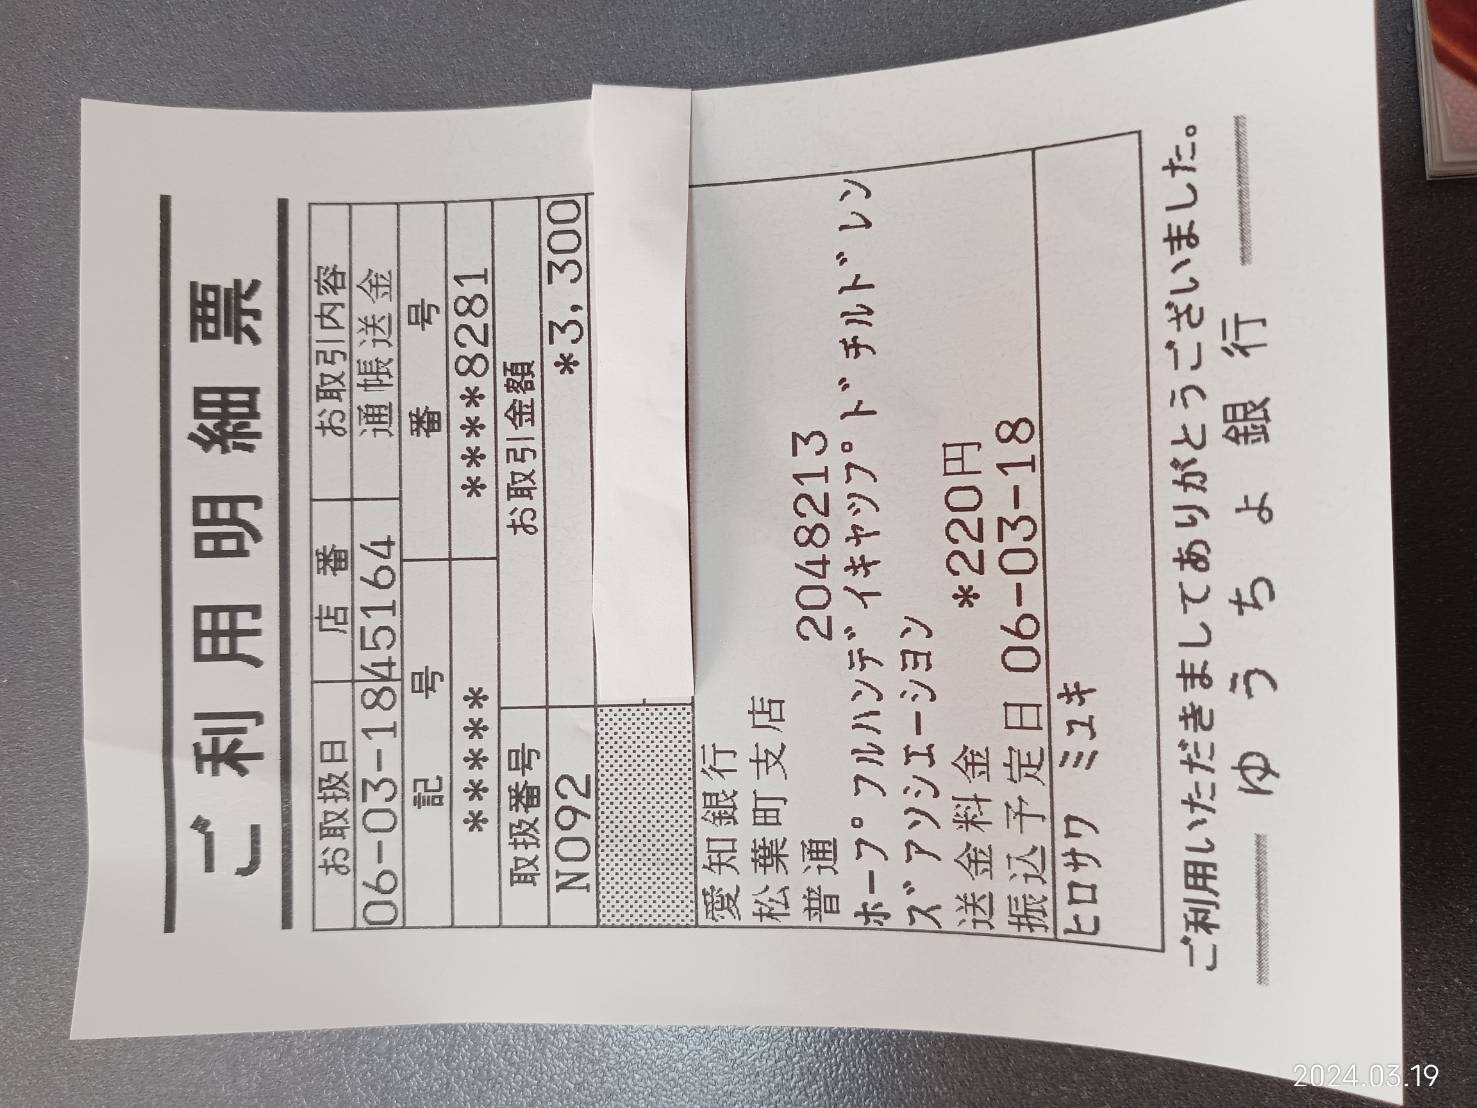 ご利用明細票
お取扱日 店番 お取引内容
06-03-18 45164 通帳送金
記号 番号
***** ****8281
取扱番号 お取引金額
N092 *3,300
愛知銀行
松葉町支店
普通 2048213
ホープフルハンディキャップドチルドレン
ズアソシエーション
送金料金 *220円
振込予定日 06-03-18
ヒロサワ ミユキ
ご利用いただきましてありがとうございました。
ゆうちょ銀行
2024.03.19